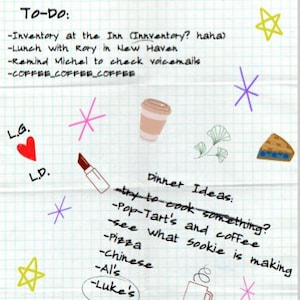 To-Do:
-Inventory at the Inn (Innventory? haha)
-Lunch with Rory in New Haven
-Remind Michel to check voicemails
-COFFEE_COFFEE_COFFEE
L.G.
L.D.
Dinner Ideas:
-try to cook something?
-Pop-Tart's and coffee
-see what Sookie is making
-Pizza
-Chinese
-Al's
-Luke's